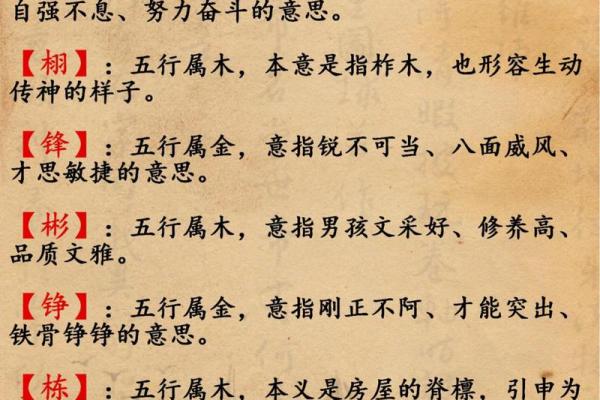 自强不息、努力奋斗的意思。
【栩】：五行属木，本意是指柞木，也形容生动
传神的样子。
【锋】：五行属金，意指锐不可当、八面威风、
才思敏捷的意思。
【彬】：五行属木，意指男孩文采好、修养高、
品质文雅。
【铮】：五行属金，意指刚正不阿、才能突出、
铁骨铮铮的意思。
【栋】：五行属木，本义是房屋的脊檩，引申为